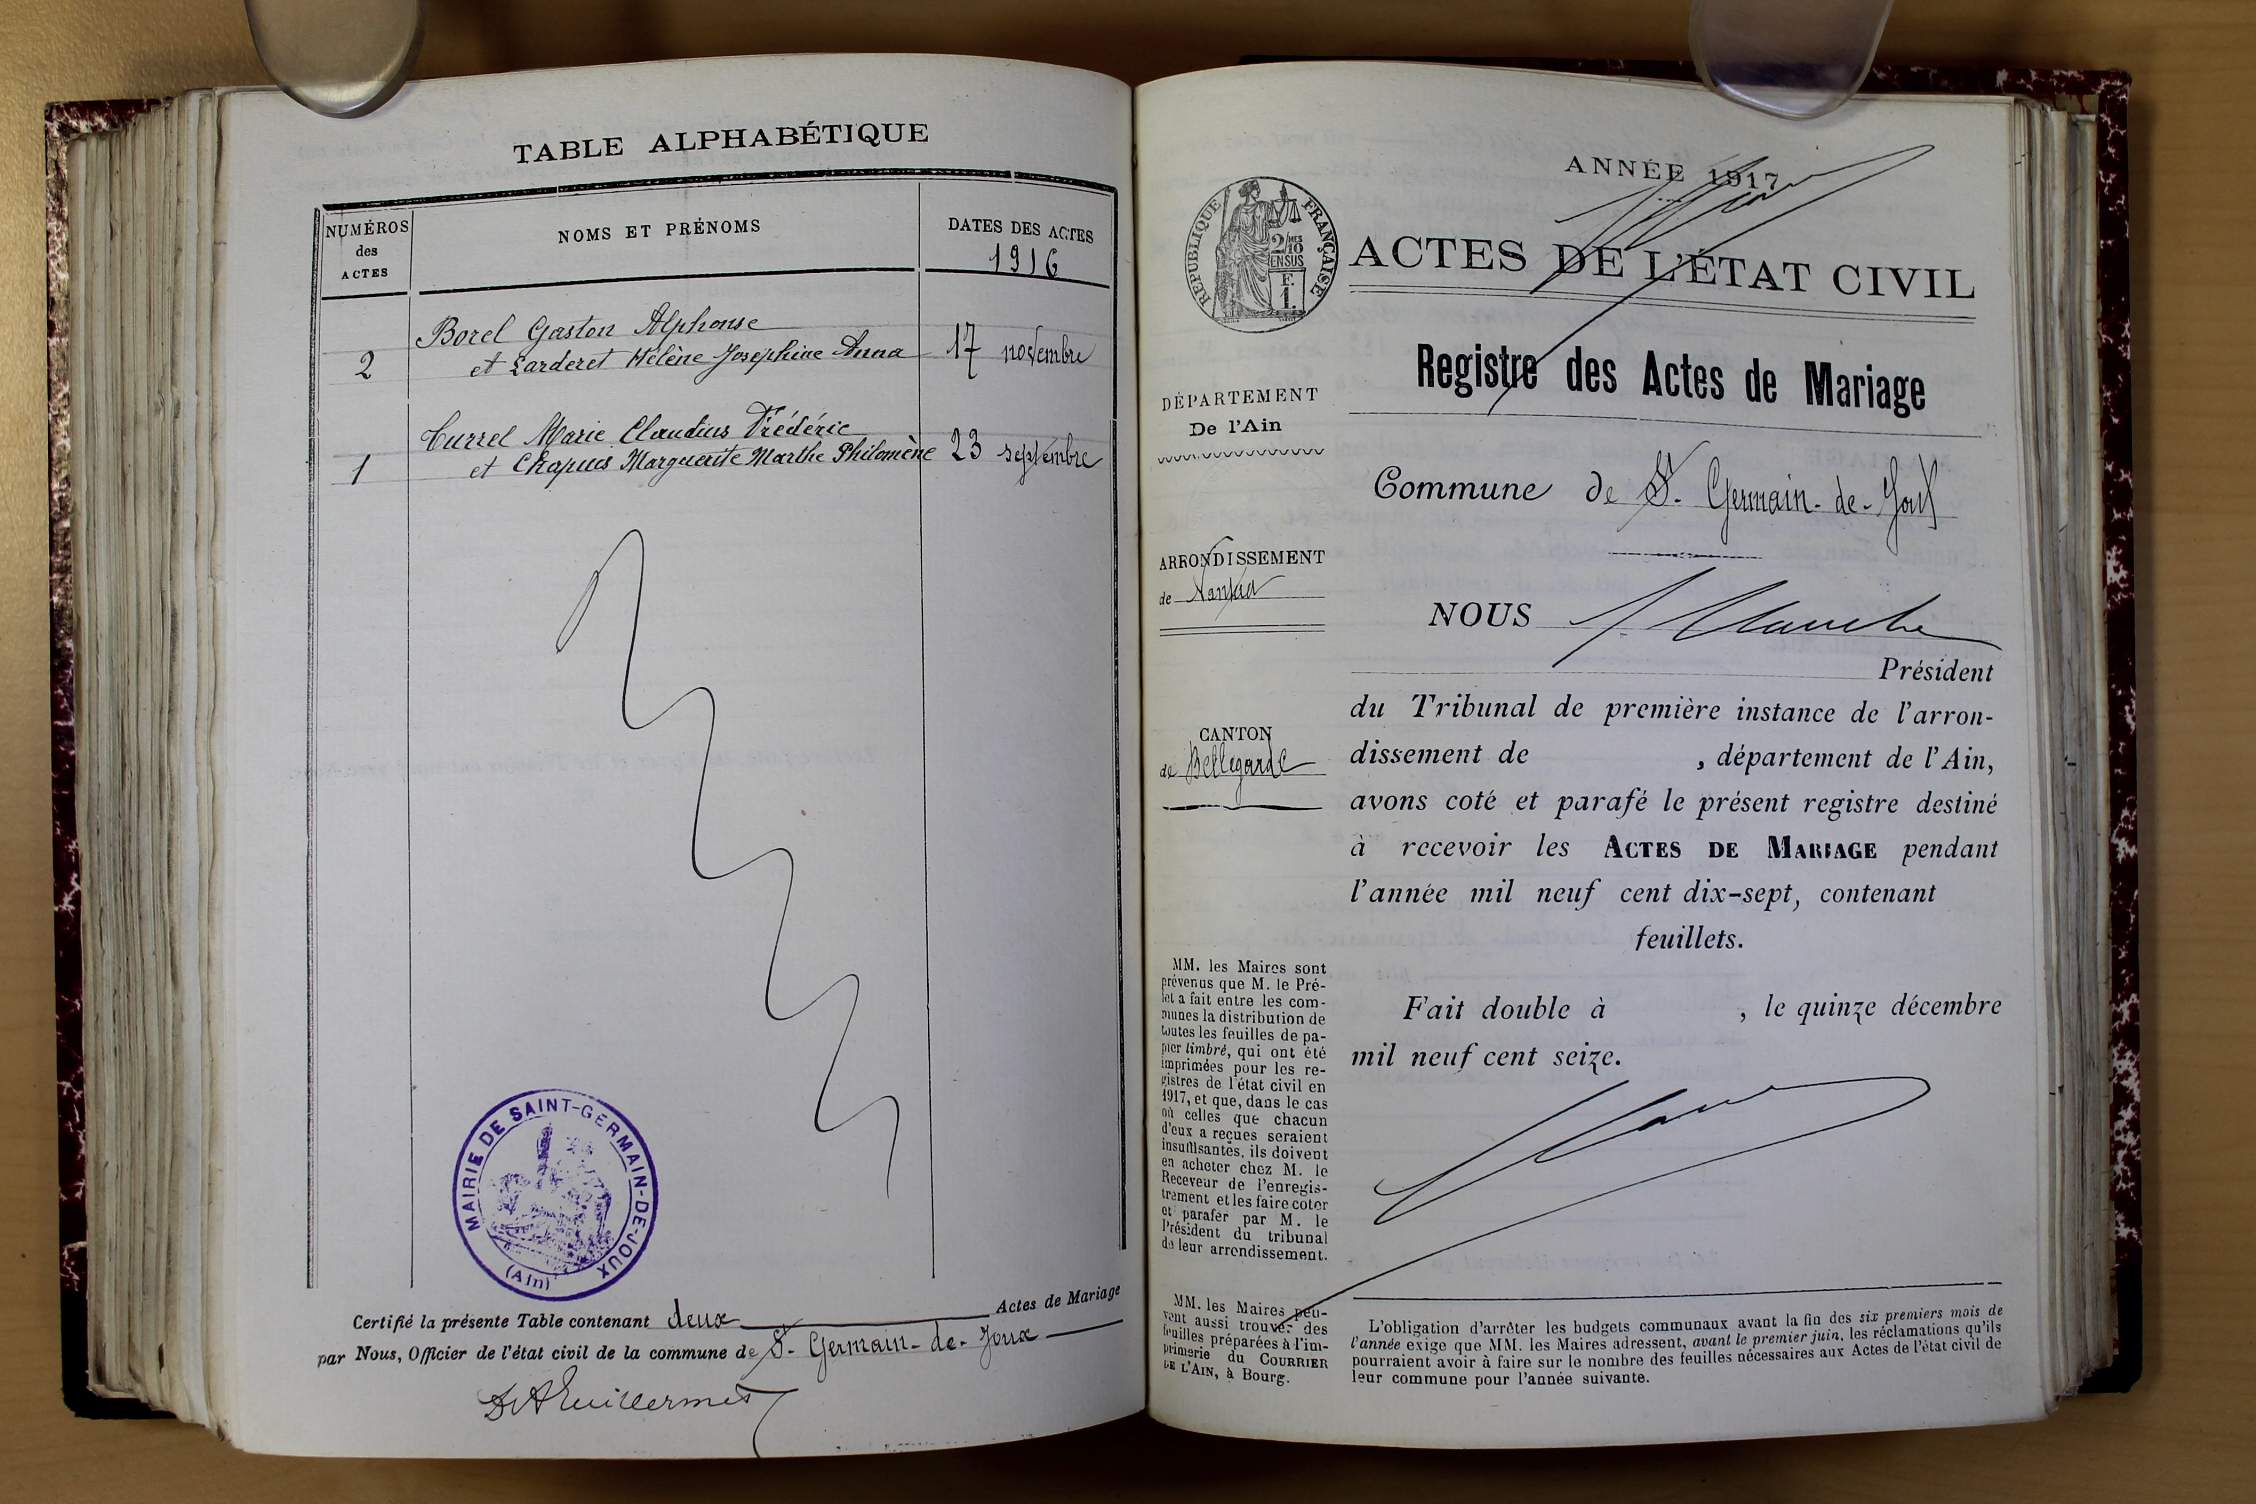 TABLE ALPHABÉTIQUE
NUMÉROS
des
ACTES
NOMS ET PRÉNOMS
DATES DES ACTES
1916
Borel Gaston Alphonse
2 et Larderet Hélène Joséphine Anna 17 novembre
Curxel Marie Claudius Frédéric
1 et Chapuis Marguerite Marthe Philomène 23 septembre
MAIRIE DE SAINT-GERMAIN-DE-JOUX
(Ain)
Certifié la présente Table contenant deux Actes de Mariage
par Nous, Officier de l'état civil de la commune de St. Germain-de-Joux
Guillermet
ANNÉE 1917
RÉPUBLIQUE FRANÇAISE
2/10
EN SUS
F.
1.
ACTES DE L'ÉTAT CIVIL
Registre des Actes de Mariage
DÉPARTEMENT
De l'Ain
Commune de St. Germain-de-Joux
ARRONDISSEMENT
de Nantua
CANTON
de Bellegarde
NOUS
Président
du Tribunal de première instance de l'arron-
dissement de , département de l'Ain,
avons coté et parafé le présent registre destiné
à recevoir les ACTES DE MARIAGE pendant
l'année mil neuf cent dix-sept, contenant
feuillets.
Fait double à , le quinze décembre
mil neuf cent seize.
MM. les Maires sont
prévenus que M. le Pré-
fet a fait entre les com-
munes la distribution de
toutes les feuilles de pa-
pier timbré, qui ont été
imprimées pour les re-
gistres de l'état civil en
1917, et que, dans le cas
où celles que chacun
d'eux a reçues seraient
insuffisantes, ils doivent
en acheter chez M. le
Receveur de l'enregis-
trement et les faire coter
et parafer par M. le
Président du tribunal
de leur arrondissement.
MM. les Maires peu-
vent aussi trouver des
feuilles préparées à l'im-
primerie du COURRIER
DE L'AIN, à Bourg.
L'obligation d'arrêter les budgets communaux avant la fin des six premiers mois de
l'année exige que MM. les Maires adressent, avant le premier juin, les réclamations qu'ils
pourraient avoir à faire sur le nombre des feuilles nécessaires aux Actes de l'état civil de
leur commune pour l'année suivante.